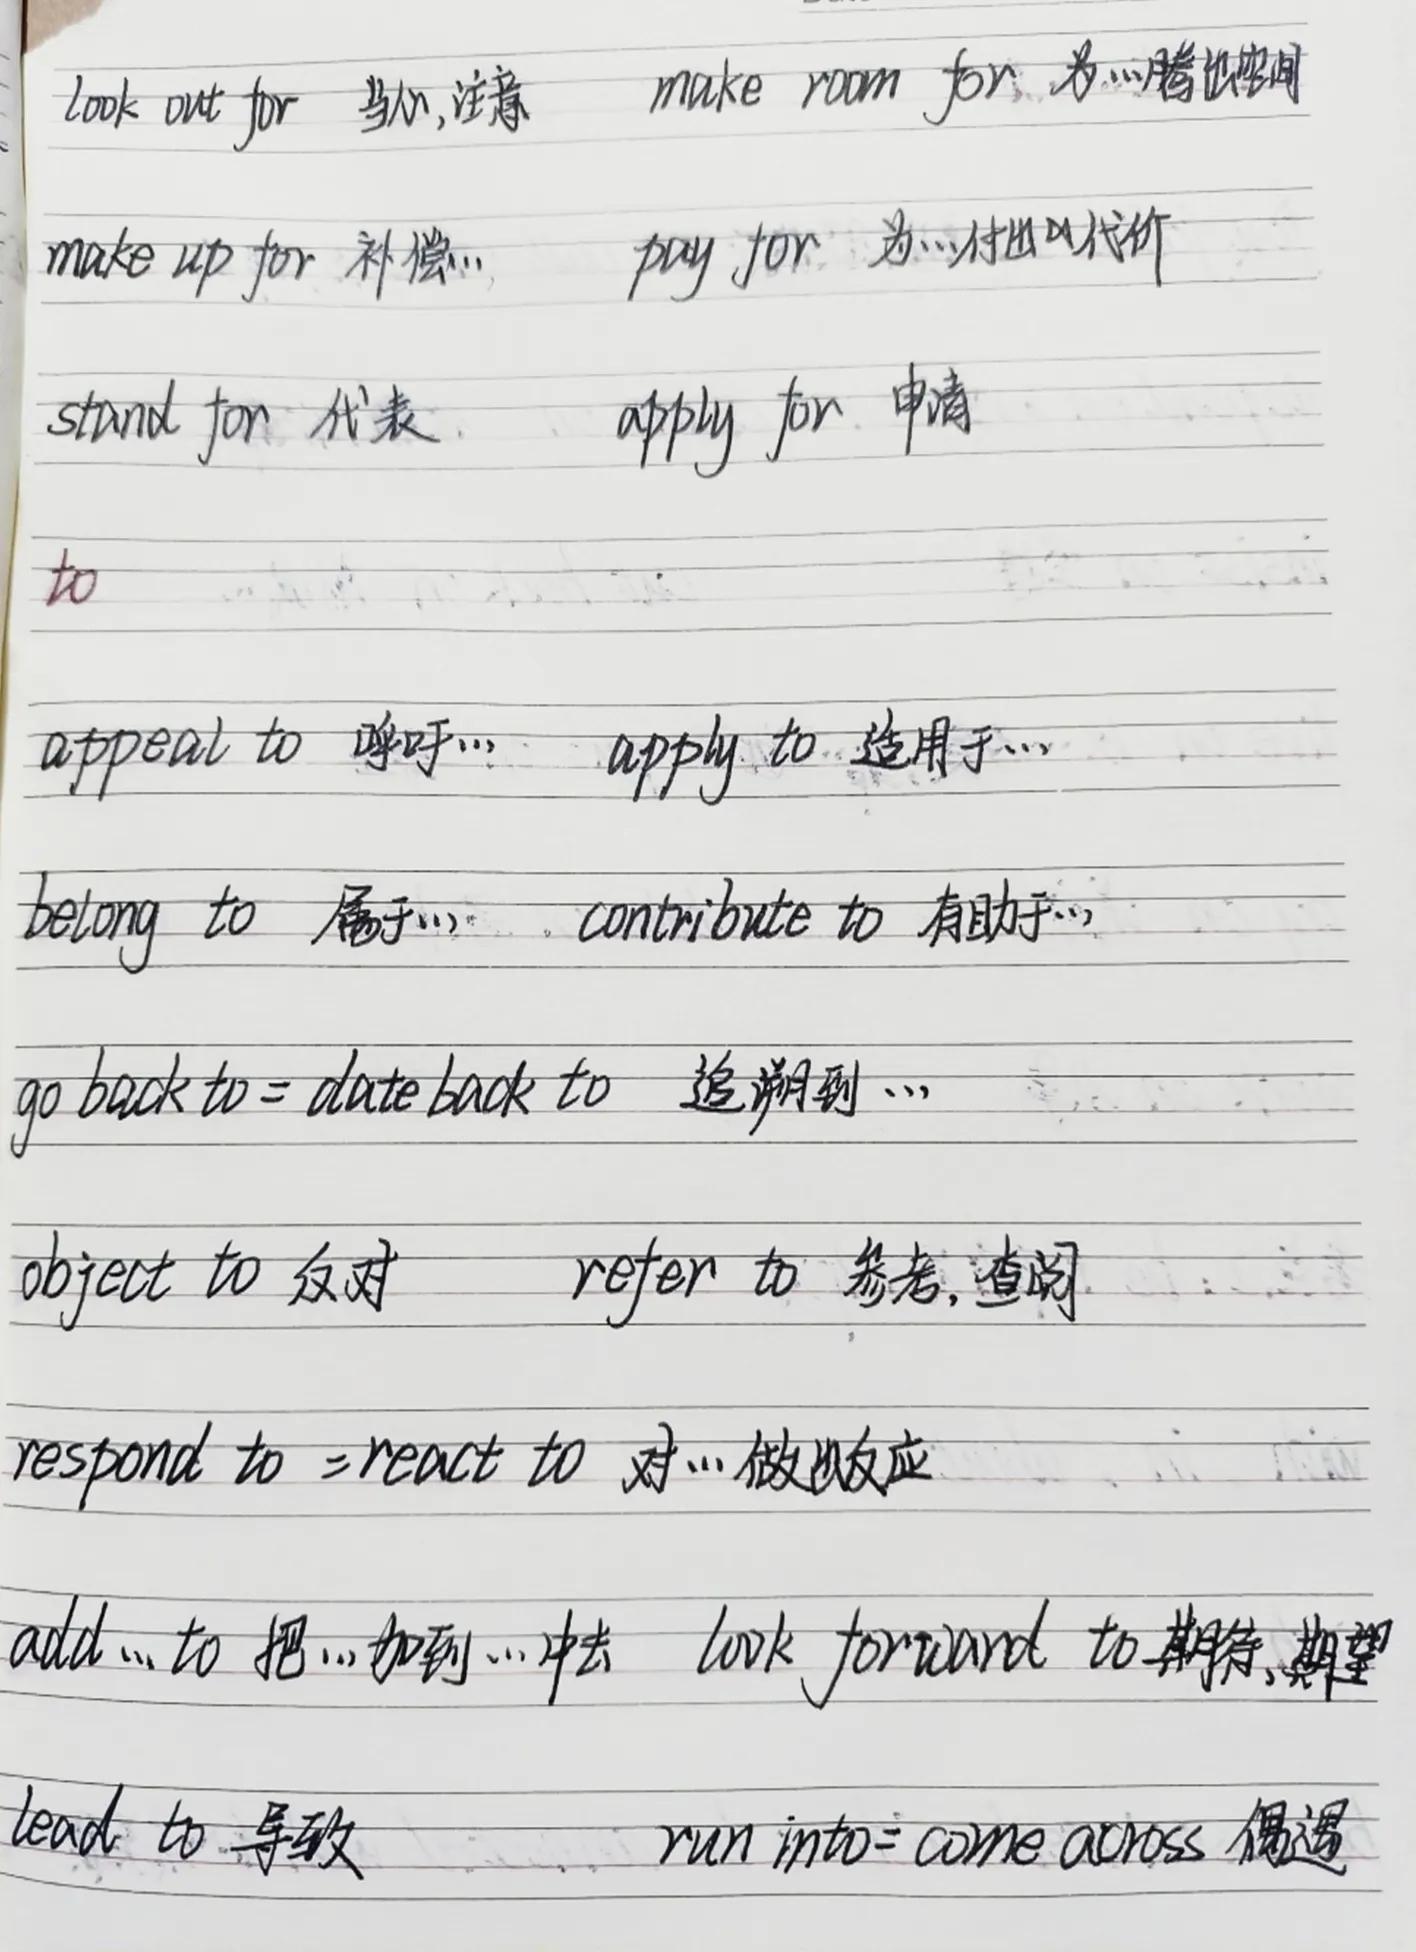 look out for 当心,注意 make room for 为…腾出空间
make up for 补偿… pay for 为…付出以代价
stand for 代表 apply for 申请
to
appeal to 呼吁… apply to 适用于…
belong to 属于… contribute to 有助于…
go back to = date back to 追溯到…
object to 反对 refer to 参考,查阅
respond to = react to 对…做出反应
add…to 把…加到…中去 look forward to 期待,期望
lead to 导致 run into = come across 偶遇